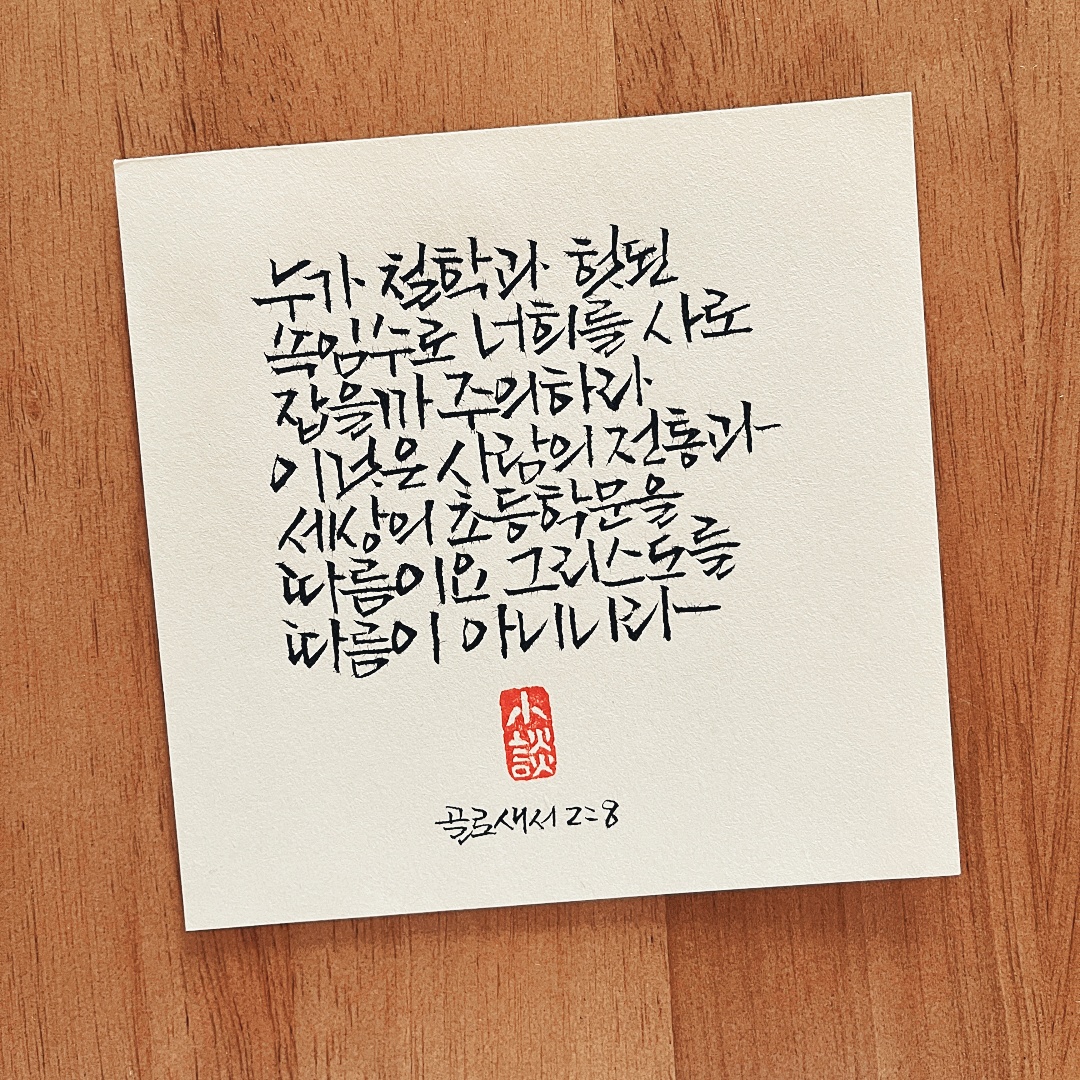 누가 철학과 헛된
속임수로 너희를 사로
잡을까 주의하라
이것은 사람의 전통과
세상의 초등학문을
따름이요 그리스도를
따름이 아니니라
小談
골로새서 2:8